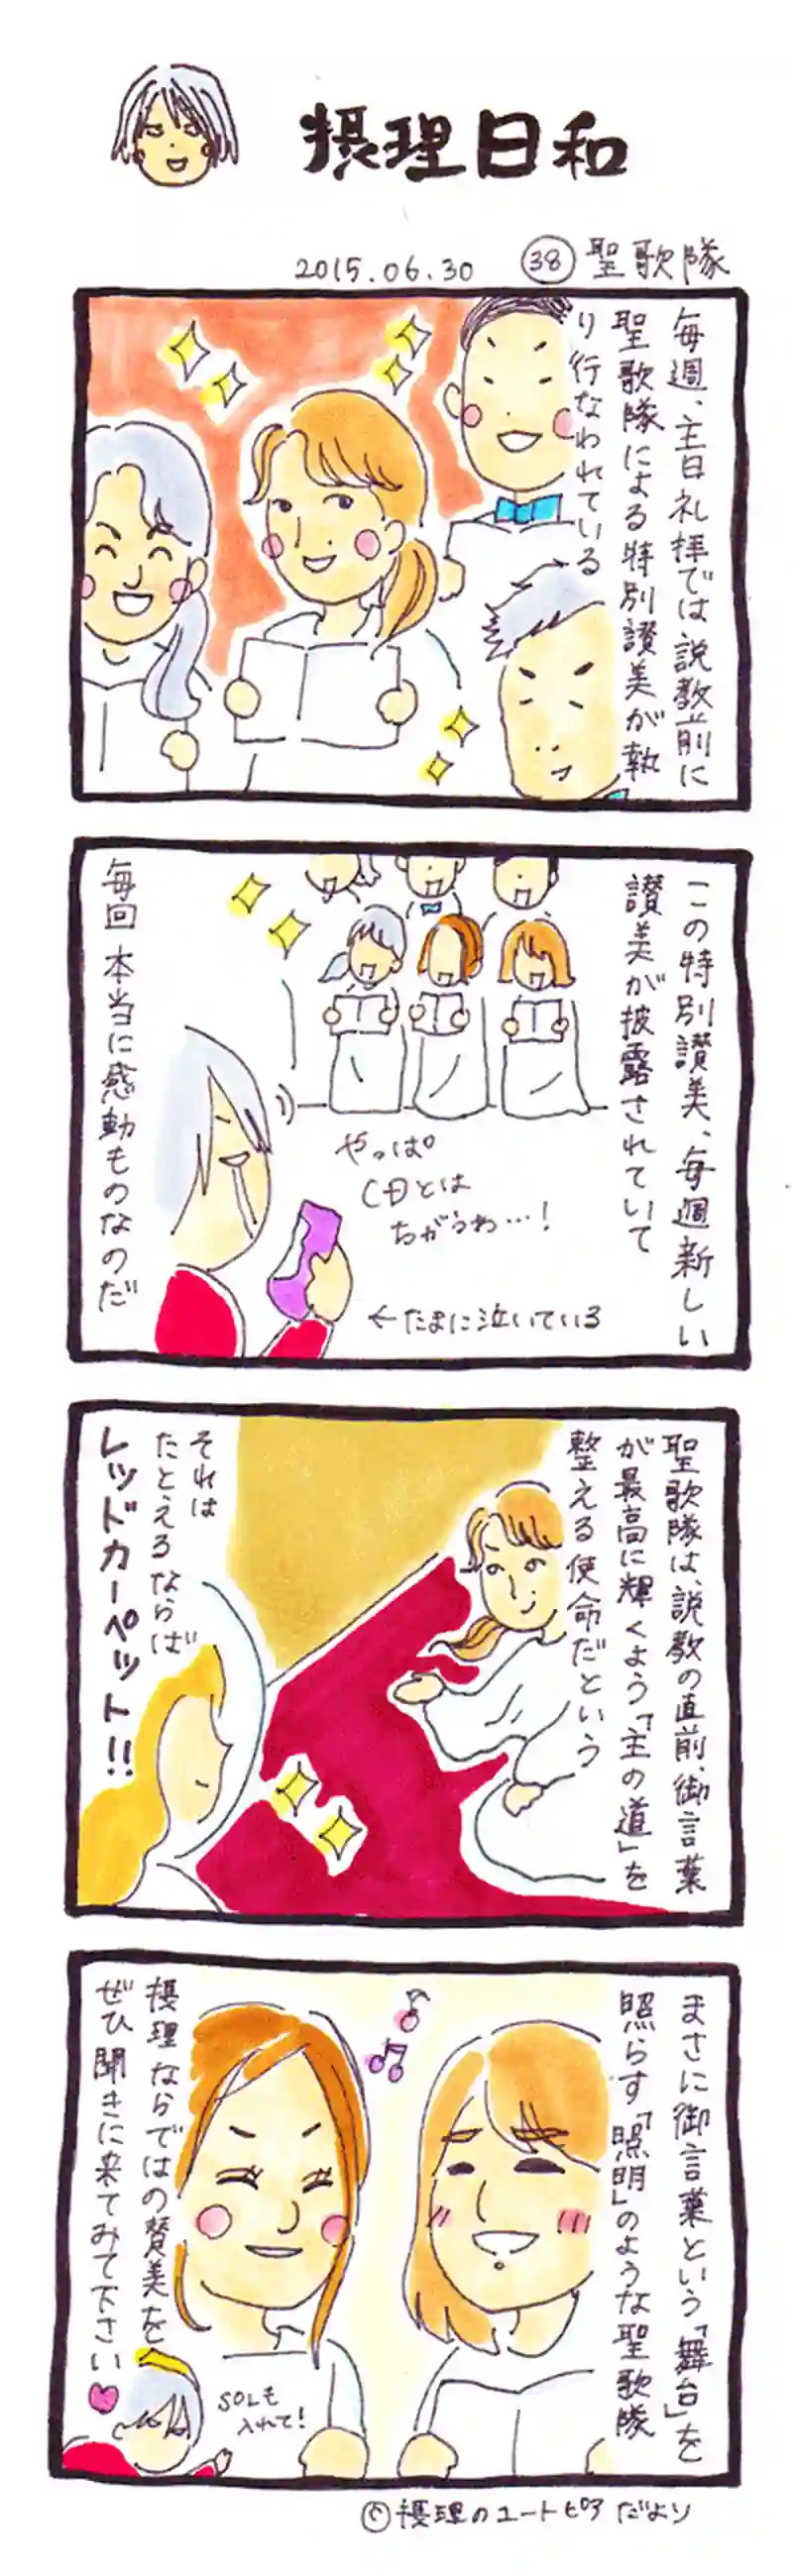 摂理日和
2015.06.30 ㊳ 聖歌隊
毎週、主日礼拝では説教前に
聖歌隊による特別讃美が執
り行なわれている
この特別讃美、毎週新しい
讃美が披露されていて
やっぱ
CDとは
ちがうわ…!
←たまに泣いている
毎回本当に感動ものなのだ
聖歌隊は、説教の直前、御言葉
が最高に輝くよう「主の道」を
整える使命だという
それは
たとえるならば
レッドカーペット!!
まさに御言葉という「舞台」を
照らす「照明」のような聖歌隊
摂理ならではの賛美を
ぜひ聞きに来てみて下さい
SOLも
入れて!
©摂理のユートピアだより